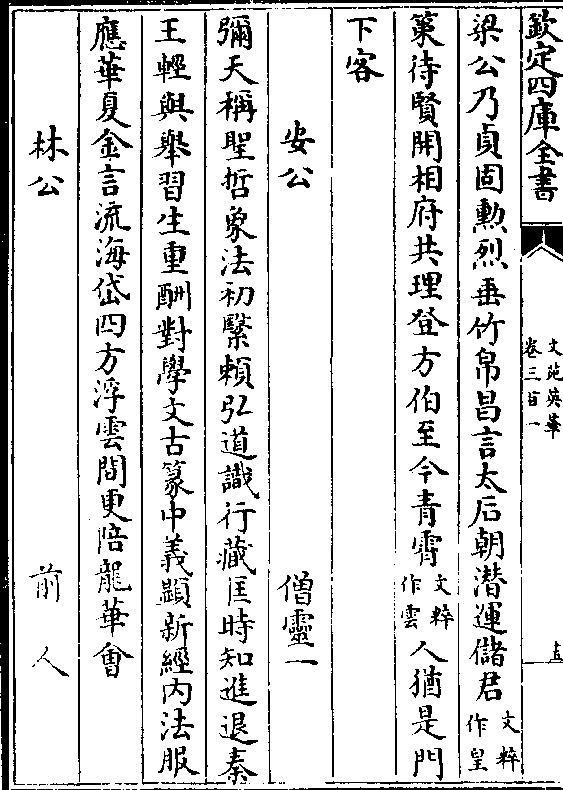 欽定四庫全書
文苑英華
卷三百一
梁公乃貞固勲烈垂竹帛昌言太后朝潜運儲君文粹作皇
策待賢開相府共理登方伯至今青霄文粹作雲人猶是門
下客
安公 僧靈一
彌天稱聖哲象法初繄頼弘道識行藏匡時知進退秦
王輕與舉習生重酬對學文古篆中義顯新經内法服
應華夏金言流海岱四方浮雲間更陪龍華會
林公 前人